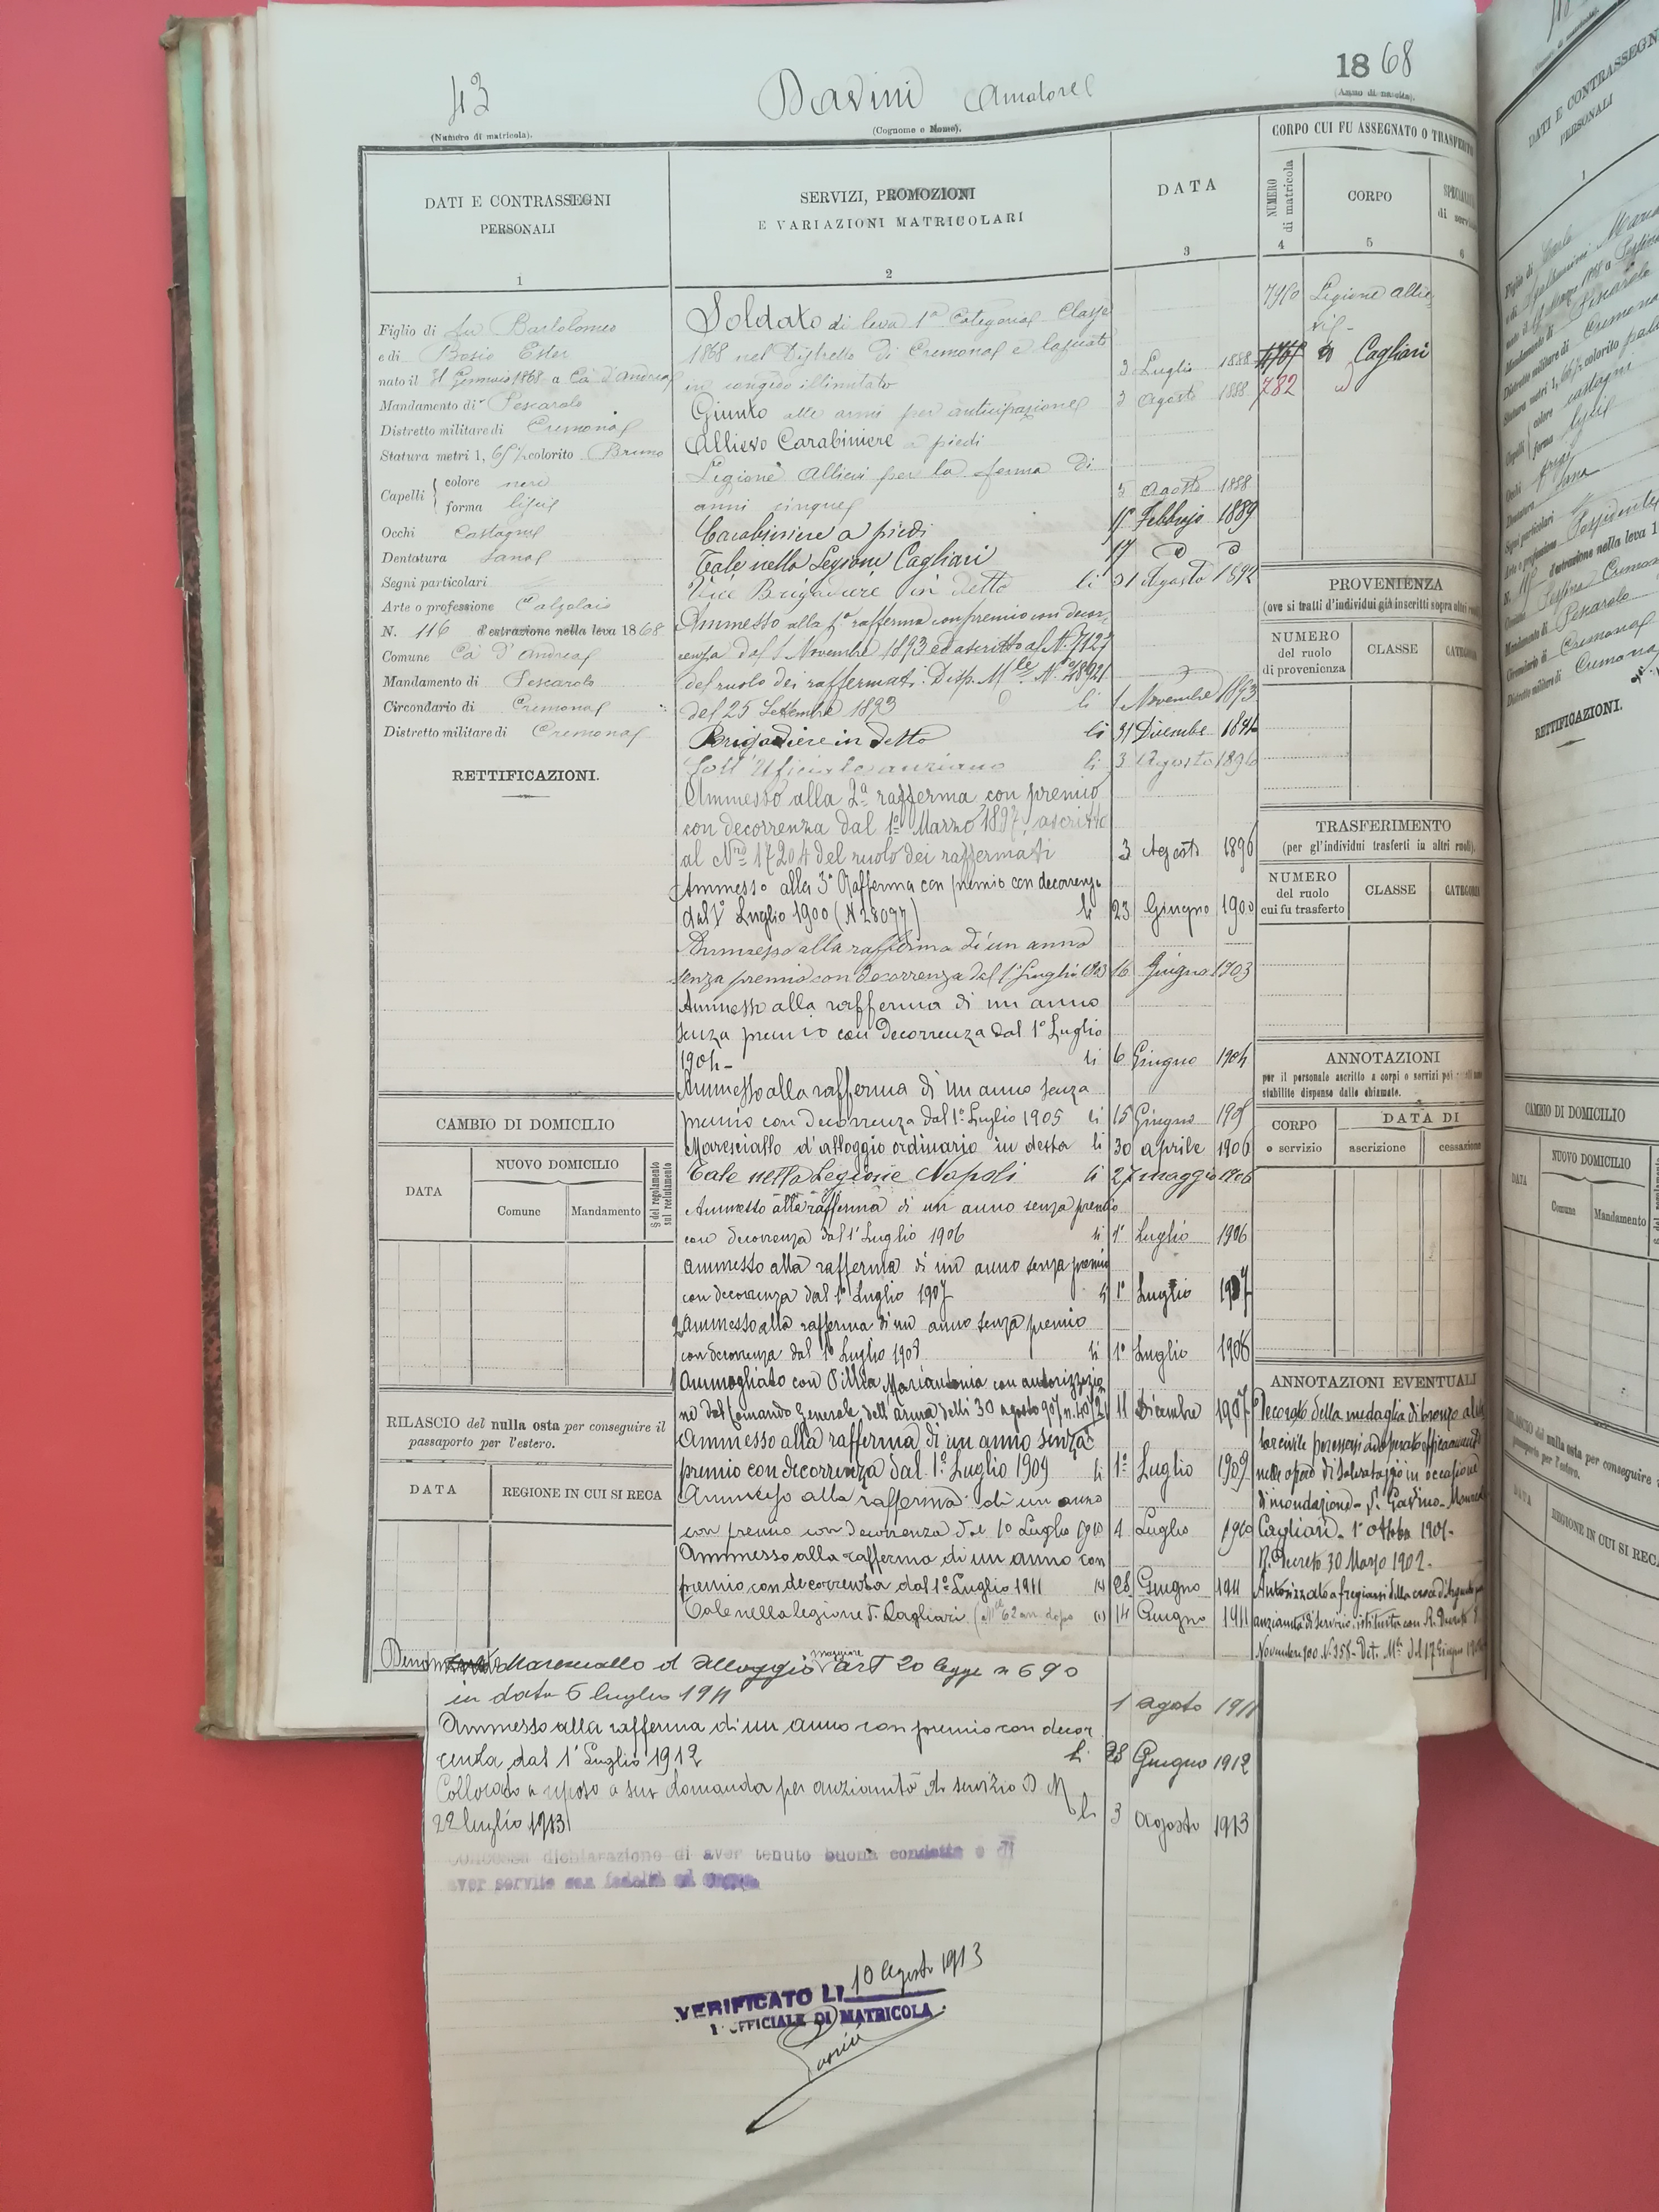 43
(Numero di matricola).
Davini Amatore
(Cognome e Nome).
1868
(Anno di nascita).
DATI E CONTRASSEGNI
PERSONALI
1
Figlio di fu Bartolomeo
e di Bosio Ester
nato il 31 Gennaio 1868 a Cà d'Andrea
Mandamento di Pescarolo
Distretto militare di Cremona
Statura metri 1, 65 ½ colorito Bruno
Capelli colore neri
forma lisci
Occhi Castagni
Dentatura Sana
Segni particolari
Arte o professione Calzolaio
N. 116 d'estrazione nella leva 1868
Comune Cà d'Andrea
Mandamento di Pescarolo
Circondario di Cremona
Distretto militare di Cremona
RETTIFICAZIONI.
CAMBIO DI DOMICILIO
DATA
NUOVO DOMICILIO
Comune
Mandamento
§ del regolamento
sul reclutamento
RILASCIO del nulla osta per conseguire il
passaporto per l'estero.
DATA
REGIONE IN CUI SI RECA
SERVIZI, PROMOZIONI
E VARIAZIONI MATRICOLARI
2
DATA
3
Soldato di leva 1ª Categoria Classe
1868 nel Distretto di Cremona e lasciato
in congedo illimitato 2 Luglio 1888
Giunto alle armi per anticipazione 3 Agosto 1888
Allievo Carabiniere a piedi
Legione Allievi per la ferma di
anni cinque 3 Agosto 1888
Carabiniere a piedi 15 Febbrajo 1889
Tale nella Legione Cagliari 17 D D
Vice Brigadiere in detta li 31 Agosto 1892
Ammesso alla 1ª rafferma con premio con decor-
renza dal 1 Novembre 1893 ed ascritto al Nº 7127
del ruolo dei raffermati. Disp. Mle Nº 28921
del 25 Settembre 1893 li 1 Novembre 1893
Brigadiere in detto li 31 Dicembre 1894
Sott'Ufficiale anziano li 3 Agosto 1896
Ammesso alla 2ª rafferma con premio
con decorrenza dal 1º Marzo 1897, ascritto
al Nro 17204 del ruolo dei raffermati 3 Agosto 1896
Ammesso alla 3ª Rafferma con premio con decorrenza
dal 1º Luglio 1900 (N 28097) li 23 Giugno 1900
Ammesso alla rafferma di un anno
senza premio con decorrenza dal 1º Luglio 1903 16 Giugno 1903
Ammesso alla rafferma di un anno
senza premio con decorrenza dal 1º Luglio
1904 - li 6 Giugno 1904
Ammesso alla rafferma di un anno senza
premio con decorrenza dal 1º Luglio 1905 li 15 Giugno 1905
Maresciallo d'alloggio ordinario in detta li 30 aprile 1906
Tale nella Legione Napoli li 27 maggio 1906
Ammesso alla rafferma di un anno senza premio
con decorrenza dal 1º Luglio 1906 li 1º Luglio 1906
ammesso alla rafferma di un anno senza premio
con decorrenza dal 1º Luglio 1907 li 1º Luglio 1907
2 ammesso alla rafferma di un anno senza premio
con decorrenza dal 1º Luglio 1908 li 1º Luglio 1908
1 Ammogliato con Pillia Mariantonia con autorizzazio
ne del Comando Generale dell'arma delli 30 agosto 907 n. 11 Dicembre 1907
Ammesso alla rafferma di un anno senza
premio con decorrenza dal 1º Luglio 1909 li 1º Luglio 1909
Ammesso alla rafferma di un anno
con premio con decorrenza dal 1º Luglio 1910 1 Luglio 1910
Ammesso alla rafferma di un anno con
premio con decorrenza dal 1º Luglio 1911 li 28 Giugno 1911
Tale nella legione di Cagliari li 14 Giugno 1911
Maresciallo d'alloggio maggiore art 20 legge n 690
in data 6 luglio 1911 1 agosto 1911
Ammesso alla rafferma di un anno con premio con decor
renza dal 1º Luglio 1912 li 28 Giugno 1912
Collocato a riposo a sua domanda per anzianità di servizio D. M
22 luglio 1913 li 3 agosto 1913
concessa dichiarazione di aver tenuto buona condotta e di
aver servito con fedeltà ed onore
VERIFICATO LI 10 Agosto 1913
L'UFFICIALE DI MATRICOLA
CORPO CUI FU ASSEGNATO O TRASFERITO
NUMERO
di matricola
4
CORPO
5
6
Legione Allievi
Cagliari
782
PROVENIENZA
(ove si tratti d'individui già inscritti sopra altri ruoli)
NUMERO
del ruolo
di provenienza
CLASSE
CATEGORIA
TRASFERIMENTO
(per gl'individui trasferti in altri ruoli).
NUMERO
del ruolo
cui fu trasferto
CLASSE
CATEGORIA
ANNOTAZIONI
per il personale ascritto a corpi o servizi
stabilite dispense dalle chiamate.
CORPO
o servizio
DATA DI
ascrizione
cessazione
ANNOTAZIONI EVENTUALI
Decorato della medaglia di bronzo al va
lor civile per essersi adoperato efficacemente
nelle opere di salvataggio in occasione
d'inondazione - S. Gavino - Monreale
Cagliari - 1º ottobre 1901 -
R. Decreto 30 Marzo 1902 -
Autorizzato a fregiarsi della croce d'Argento per
anzianità di servizio istituita con R. Decreto 8
Novembre 900 N. 358 - Det. Mle del 17 Giugno
DATI E CONTRASSEGNI
PERSONALI
1
RETTIFICAZIONI.
CAMBIO DI DOMICILIO
DATA
NUOVO DOMICILIO
Comune
Mandamento
RILASCIO del nulla osta per conseguire
passaporto per l'estero.
DATA
REGIONE IN CUI SI RECA